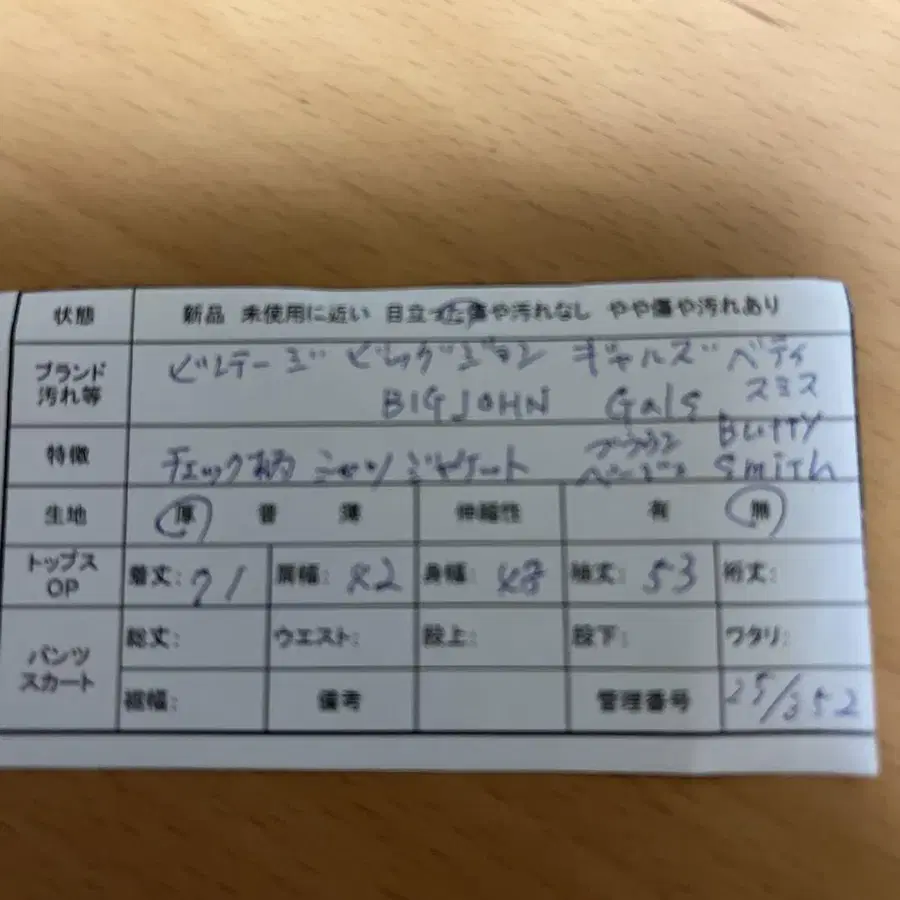 状態 新品 未使用に近い 目立った傷や汚れなし やや傷や汚れあり
ブランド 汚れ等 ビンテージ ビッグジョン ギャルズ ベティ スミス
BIG JOHN Gals BETTY Smith
特徴 チェック柄 シャツ ジャケット ブラウン ベージュ
生地 厚 普 薄 伸縮性 有 無
トップス OP 着丈: 71 肩幅: 42 身幅: 48 袖丈: 53 裄丈:
パンツ スカート 総丈: ウエスト: 股上: 股下: ワタリ:
裾幅: 備考 管理番号 25/352